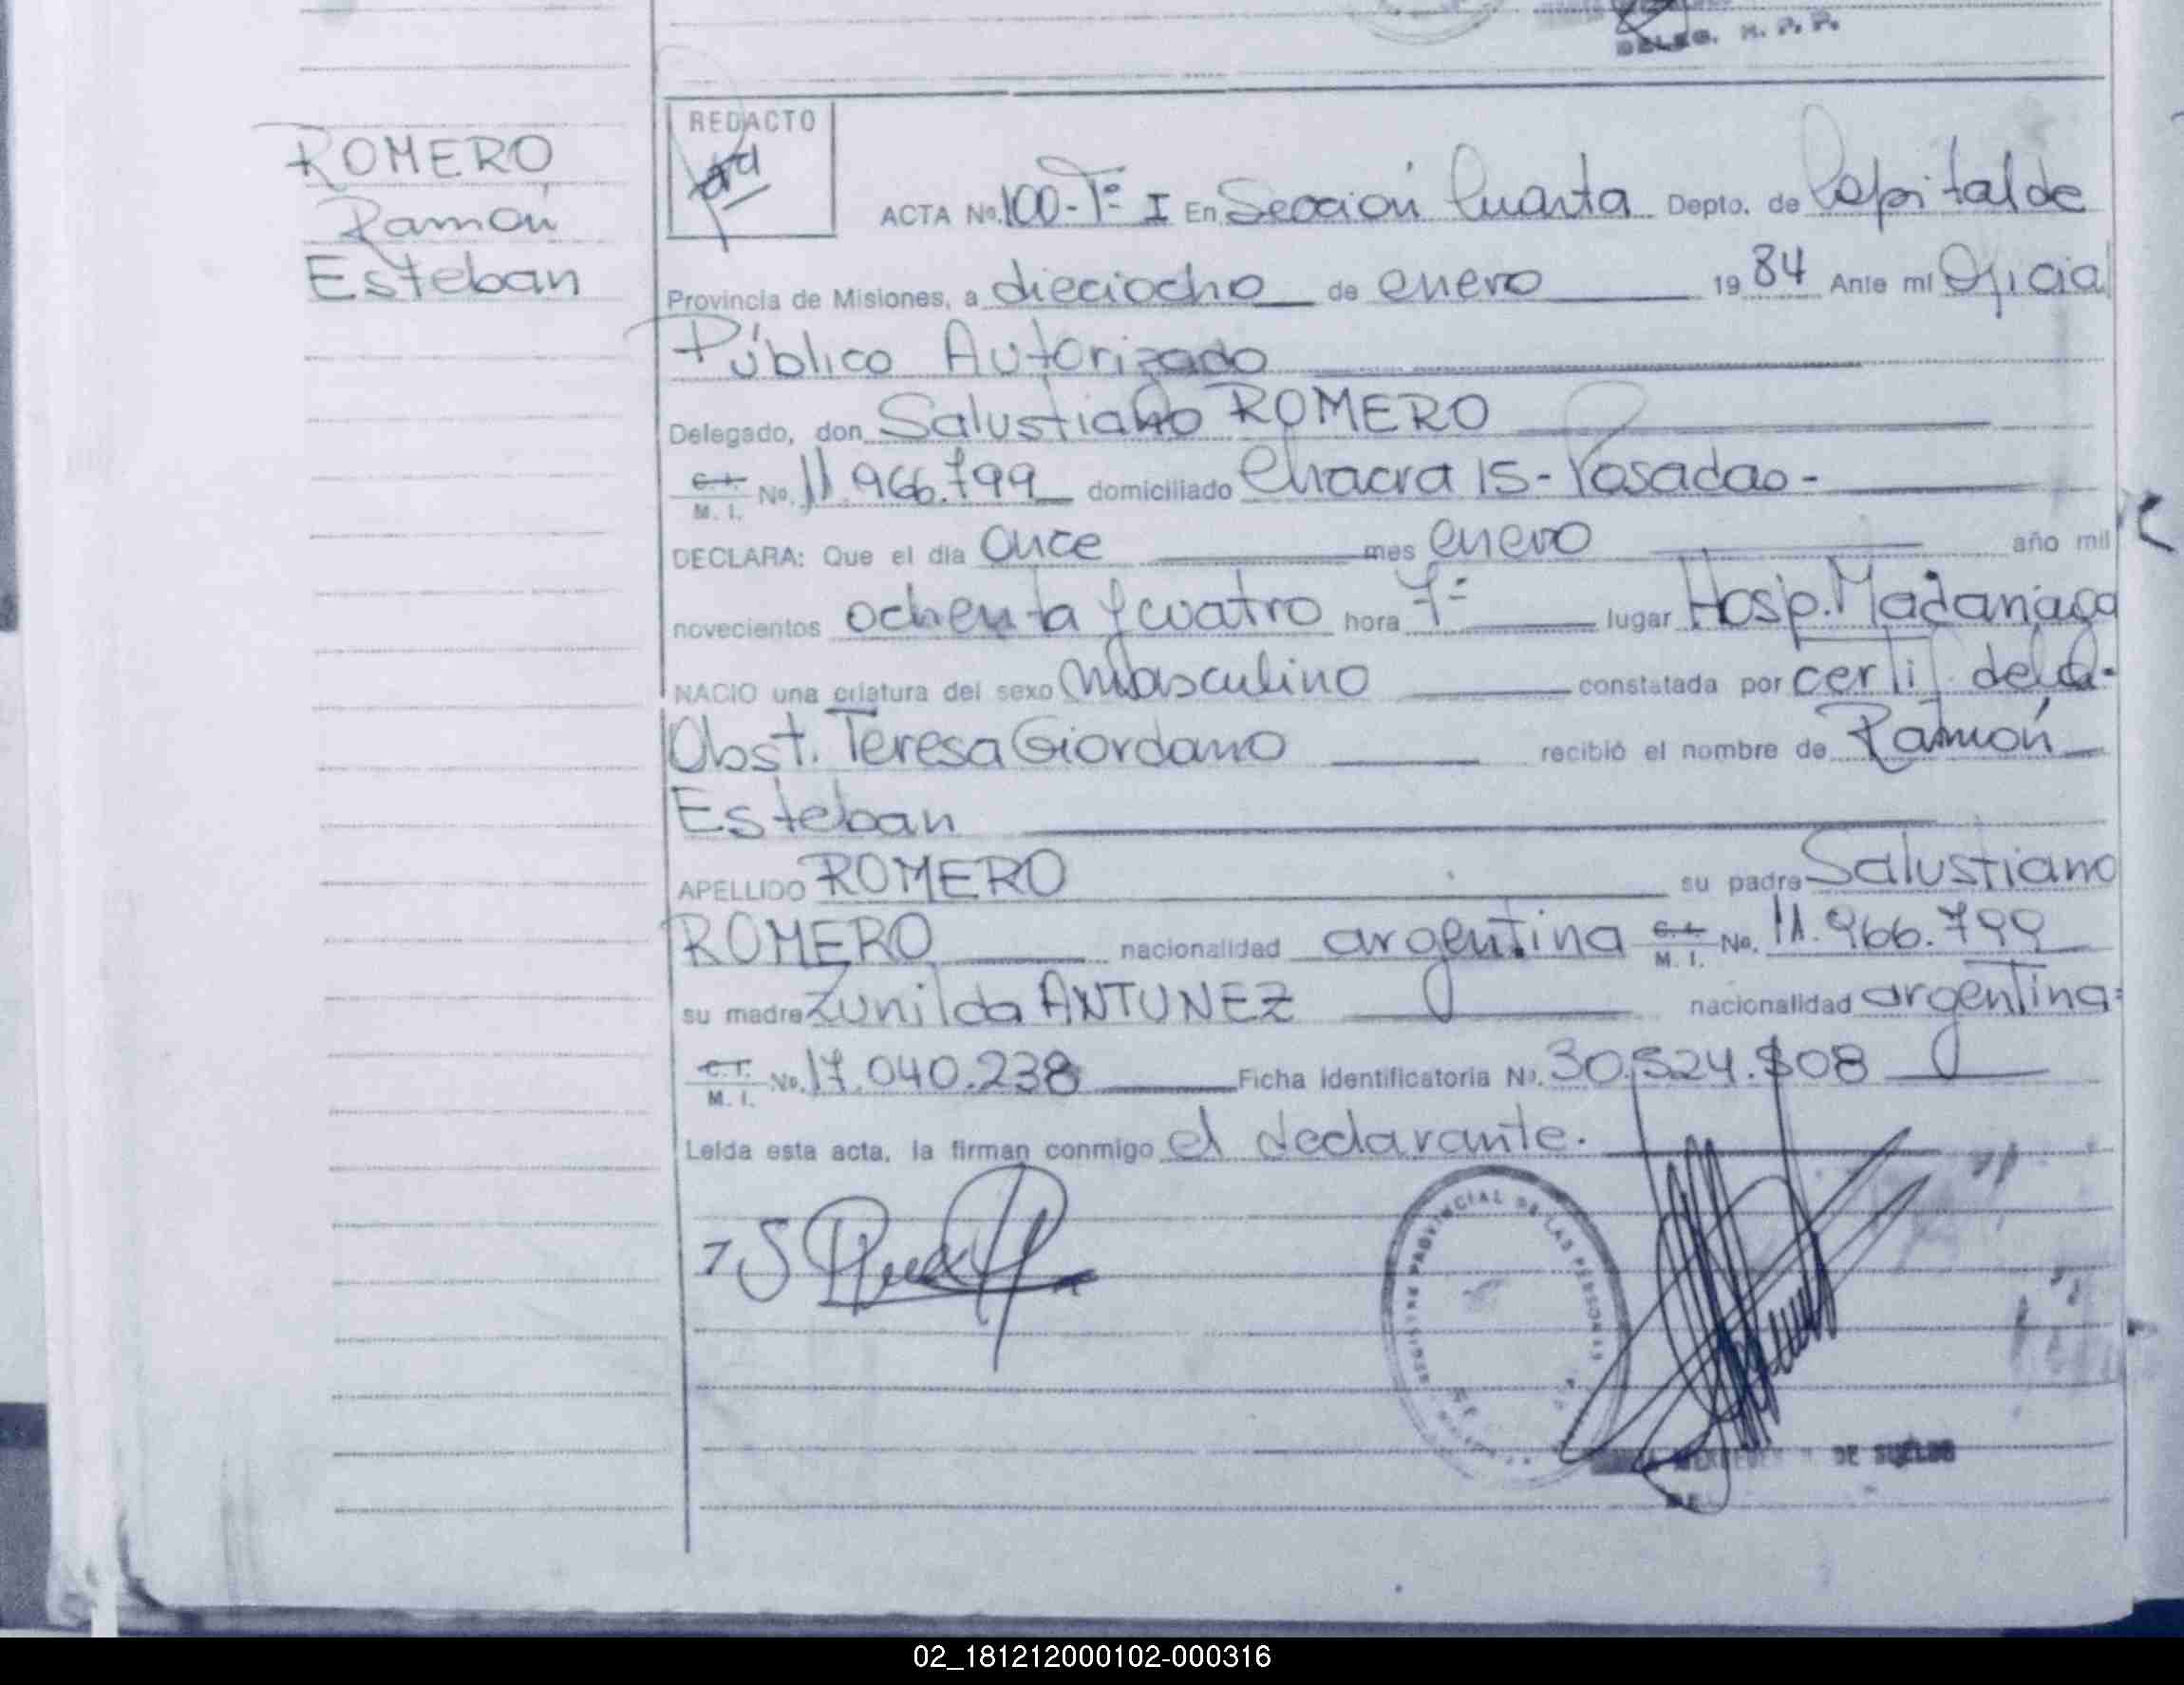 DELEG. R. P. P.
ROMERO
Ramón
Esteban
REDACTO
ACTA No. 100-Tº I En Sección Cuarta Depto. de Capital de
Provincia de Misiones, a dieciocho de enero 1984 Ante mi Oficial
Público Autorizado
Delegado, don Salustiano ROMERO
C.I. M. I. No. 11.966.799 domiciliado Chacra 15- Posadas-
DECLARA: Que el día once mes enero año mil
novecientos ochenta y cuatro hora 7- lugar Hosp. Madariaga
NACIO una criatura del sexo masculino constatada por certif. de la
Obst. Teresa Giordano recibió el nombre de Ramón
Esteban
APELLIDO ROMERO su padre Salustiano
ROMERO nacionalidad argentina C.I. M. I. No. 11.966.799
su madre Zunilda ANTUNEZ nacionalidad argentina
C.I. M. I. No. 17.040.238 Ficha Identificatoria No. 30.524.808
Leída esta acta, la firman conmigo el declarante.
REGISTRO PROVINCIAL DE LAS PERSONAS
DE SUELDO
02_181212000102-000316